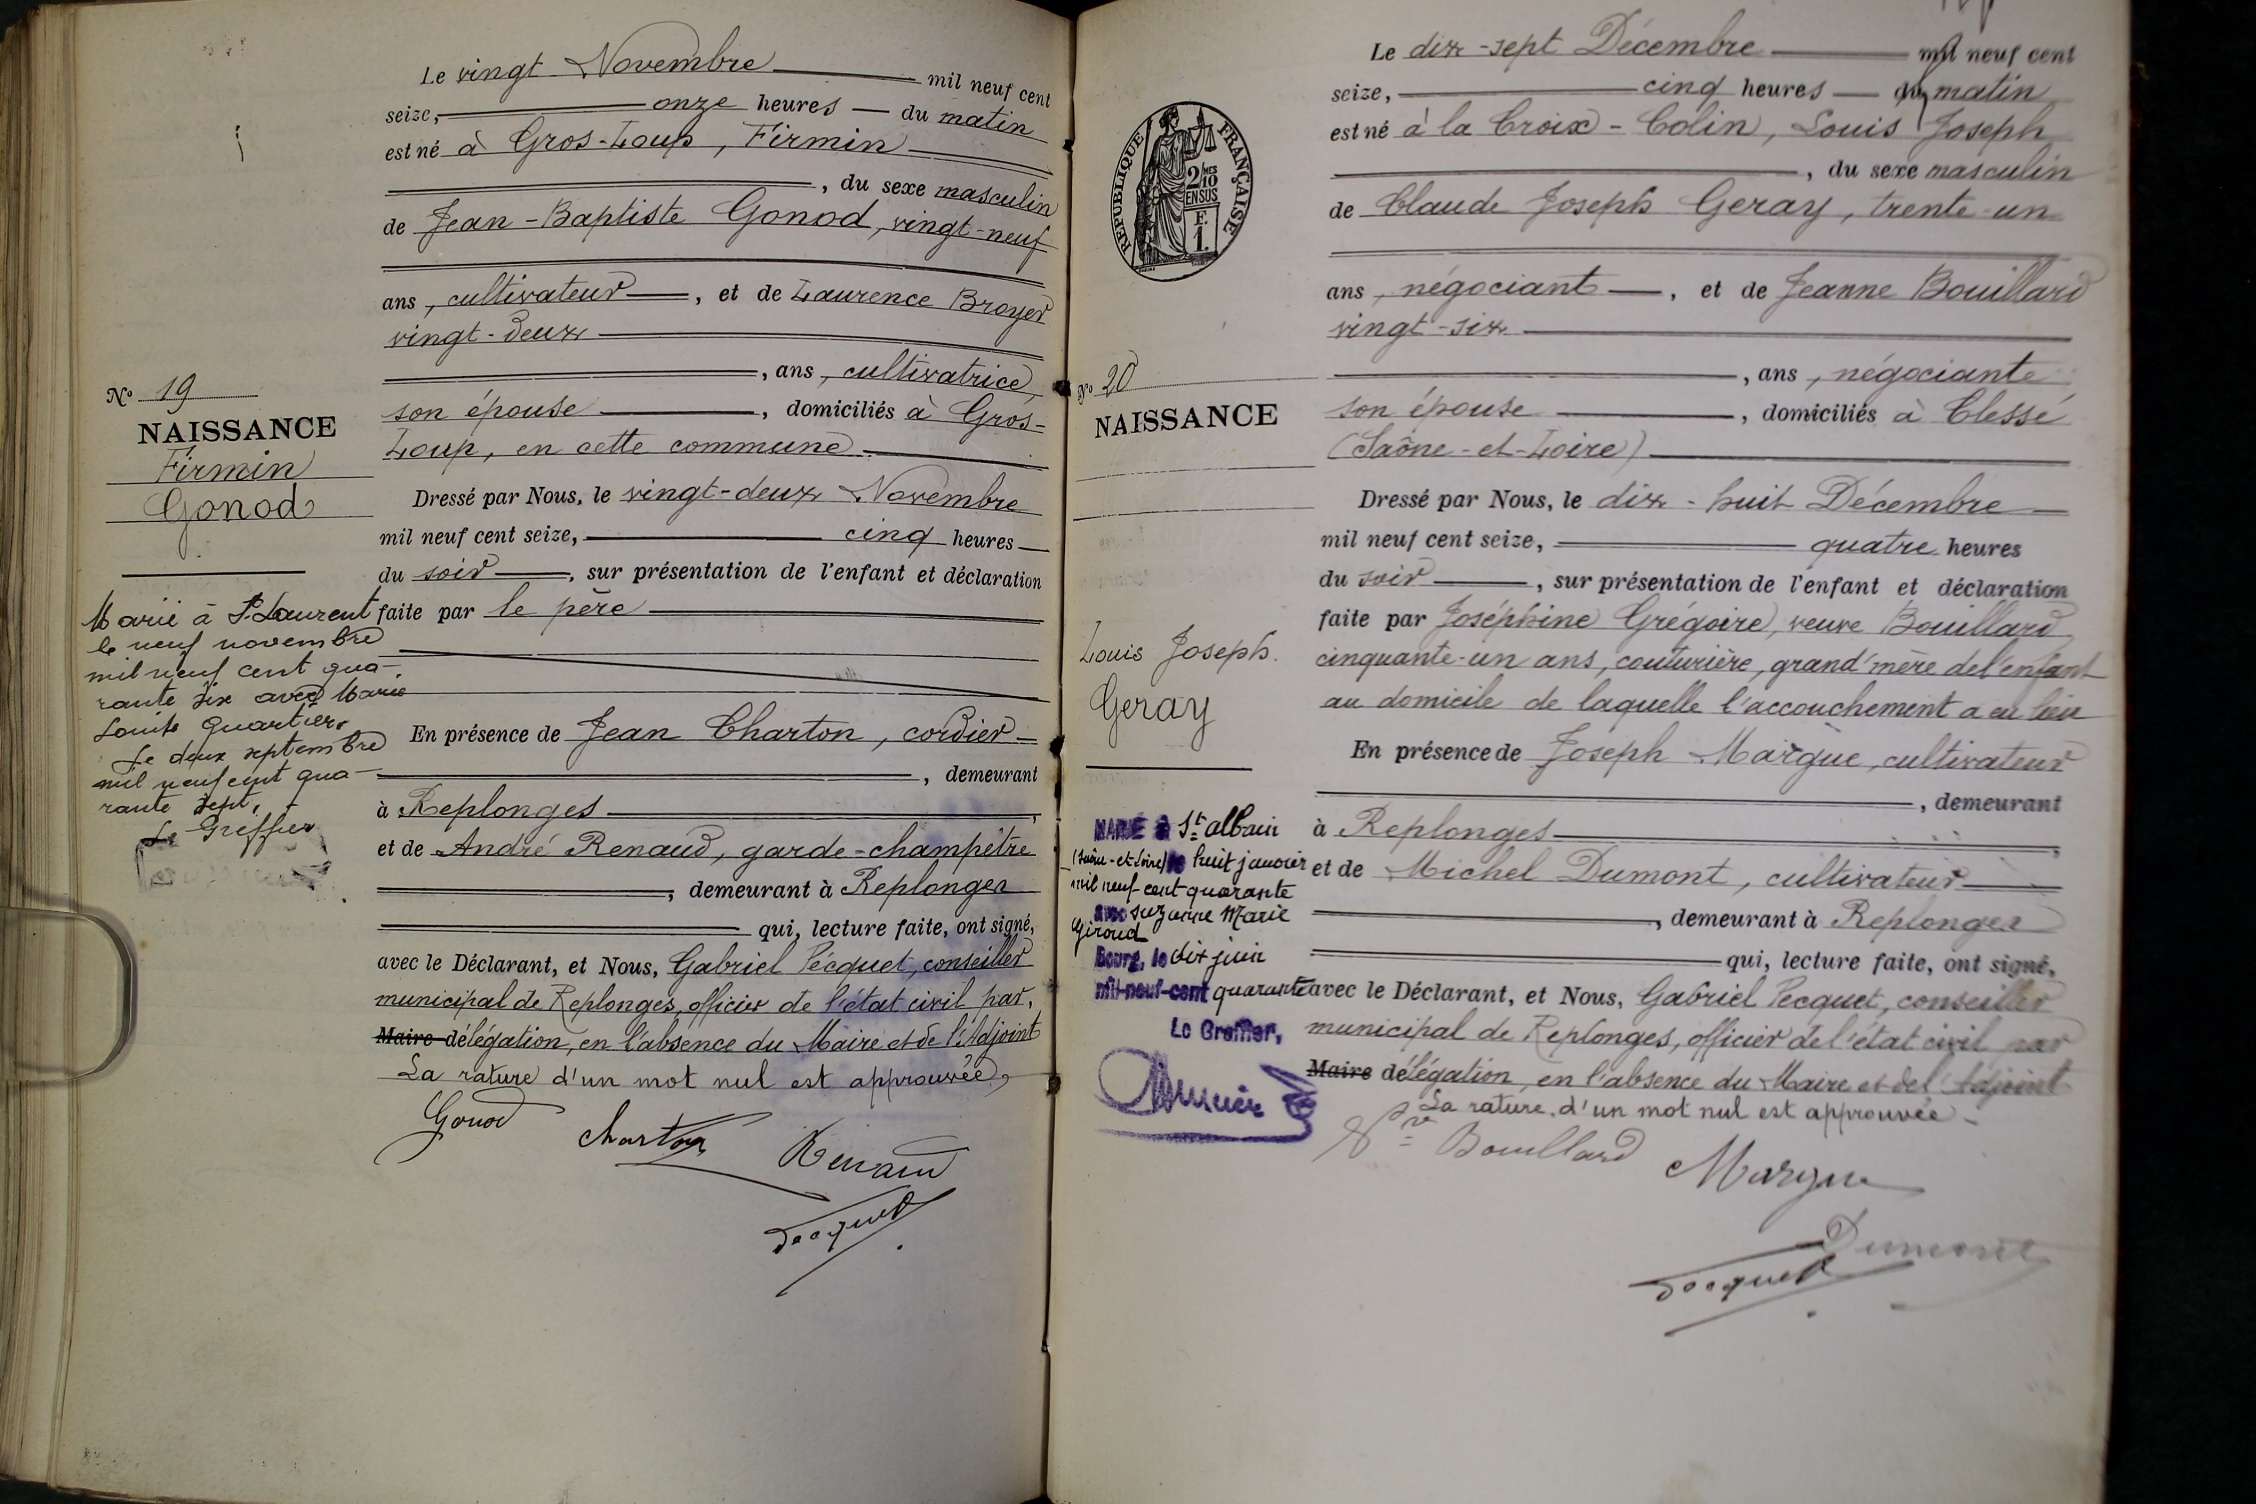 Le vingt Novembre mil neuf cent
seize, onze heures du matin
est né à Gros-Loup, Firmin
, du sexe masculin
de Jean-Baptiste Gonod, vingt-neuf
ans, cultivateur, et de Laurence Broyer
vingt-deux
, ans, cultivatrice,
son épouse, domiciliés à Gros-
Loup, en cette commune
Dressé par Nous, le vingt-deux Novembre
mil neuf cent seize, cinq heures
du soir, sur présentation de l'enfant et déclaration
faite par le père
En présence de Jean Charton, cordier
, demeurant
à Replonges
et de André Renaud, garde-champêtre
, demeurant à Replonges
qui, lecture faite, ont signé,
avec le Déclarant, et Nous, Gabriel Pécquet, conseiller
municipal de Replonges, officier de l'état civil par
Maire délégation, en l'absence du Maire et de l'Adjoint
La rature d'un mot nul est approuvée
Gonod
Charton
Renaud
Pecquet
No 19
NAISSANCE
Firmin
Gonod
Marié à St Laurent
le neuf novembre
mil neuf cent qua-
rante six avec Marie
Louise Quartier
Le deux septembre
mil neuf cent qua-
rante sept,
Le Greffier
Le dix-sept Décembre mil neuf cent
seize, cinq heures du matin
est né à la Croix-Colin, Louis Joseph
, du sexe masculin
de Claude Joseph Geray, trente-un
ans, négociant, et de Jeanne Bouillard
vingt-six
, ans, négociante
son épouse, domiciliés à Clessé
(Saône-et-Loire)
Dressé par Nous, le dix-huit Décembre
mil neuf cent seize, quatre heures
du soir, sur présentation de l'enfant et déclaration
faite par Joséphine Grégoire, veuve Bouillard,
cinquante-un ans, couturière, grand'mère de l'enfant
au domicile de laquelle l'accouchement a eu lieu
En présence de Joseph Margue, cultivateur
, demeurant
à Replonges
et de Michel Dumont, cultivateur
, demeurant à Replonges
qui, lecture faite, ont signé,
avec le Déclarant, et Nous, Gabriel Pecquet, conseiller
municipal de Replonges, officier de l'état civil par
Maire délégation, en l'absence du Maire et de l'Adjoint
La rature d'un mot nul est approuvée
Vve Bouillard
Margue
Dumont
Pecquet
RÉPUBLIQUE FRANÇAISE
2 MES
10
EN SUS
F.
1.
No 20
NAISSANCE
Louis Joseph
Geray
MARIÉ à St albain
(Saône-et-Loire) le huit janvier
mil neuf cent quarante
avec suzanne Marie
Giroud
Bourg, le dix juin
mil-neuf-cent quarante
Le Greffier,